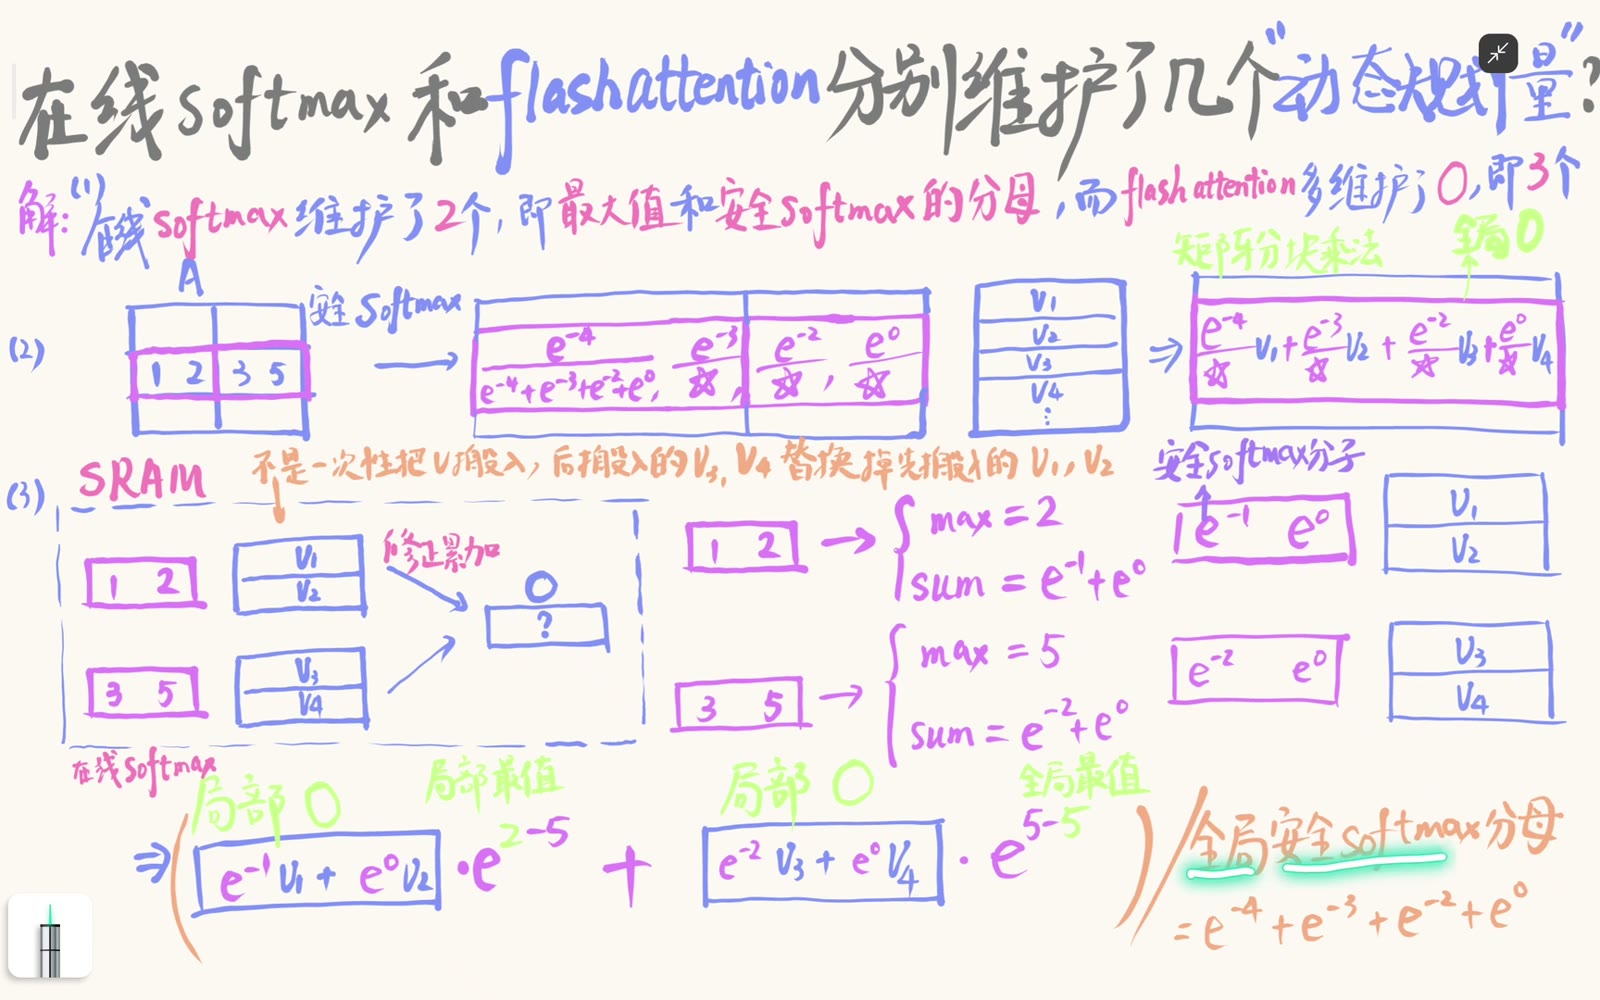 在线softmax 和flash attention分别维护了几个“动态规划量”?
解:(1)在线softmax维护了2个,即最大值和安全softmax的分母,而flash attention多维护了O,即3个
矩阵分块乘法 全局O
A
安全softmax
(2)
1 2 3 5
e⁻⁴/(e⁻⁴+e⁻³+e⁻²+e⁰), e⁻³/☆, e⁻²/☆, e⁰/☆
V₁
V₂
V₃
V₄
⋮
⇒ e⁻⁴/☆ V₁ + e⁻³/☆ V₂ + e⁻²/☆ V₃ + e⁰/☆ V₄
(3) SRAM
不是一次性把V搬入,后搬入的V₃,V₄替换掉先搬入的V₁,V₂
1 2
V₁
V₂
修正累加
O
?
3 5
V₃
V₄
在线softmax
1 2 → { max = 2
sum = e⁻¹+e⁰
安全softmax分子
e⁻¹ e⁰
V₁
V₂
3 5 → { max = 5
sum = e⁻²+e⁰
e⁻² e⁰
V₃
V₄
局部O 局部最值 局部O 全局最值
⇒ ( e⁻¹V₁ + e⁰V₂ · e²⁻⁵ + e⁻²V₃ + e⁰V₄ · e⁵⁻⁵ ) / 全局安全softmax分母
= e⁻⁴+e⁻³+e⁻²+e⁰